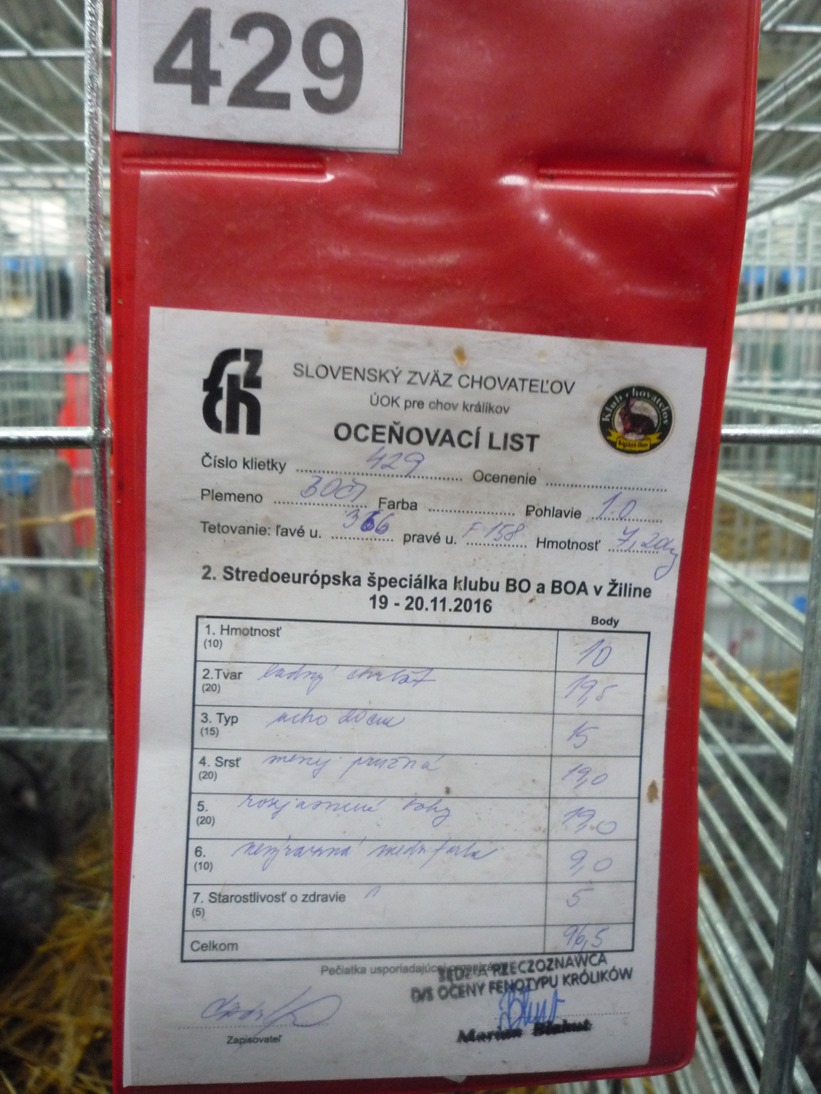 429
SLOVENSKÝ ZVÄZ CHOVATEĽOV
ÚOK pre chov králikov
OCEŇOVACÍ LIST
Klub chovateľov
Číslo klietky 429 Ocenenie
Plemeno Farba Pohlavie 1.0
Tetovanie: ľavé u. 366 pravé u. F 158 Hmotnosť 7,20kg
2. Stredoeurópska špeciálka klubu BO a BOA v Žiline
19 - 20.11.2016
Body
1. Hmotnosť 10
(10)
2.Tvar ladný chrbát 19,5
(20)
3. Typ ucho 20cm 15
(15)
4. Srsť menej pružná 19,0
(20)
5. 19,0
(20)
6. nevýrazná medzifarba 9,0
(10)
7. Starostlivosť o zdravie 5
(5)
Celkom 96,5
Pečiatka usporiadajúcej
SĘDZIA RZECZOZNAWCA
D/S OCENY FENOTYPU KRÓLIKÓW
Zapisovateľ
Marian